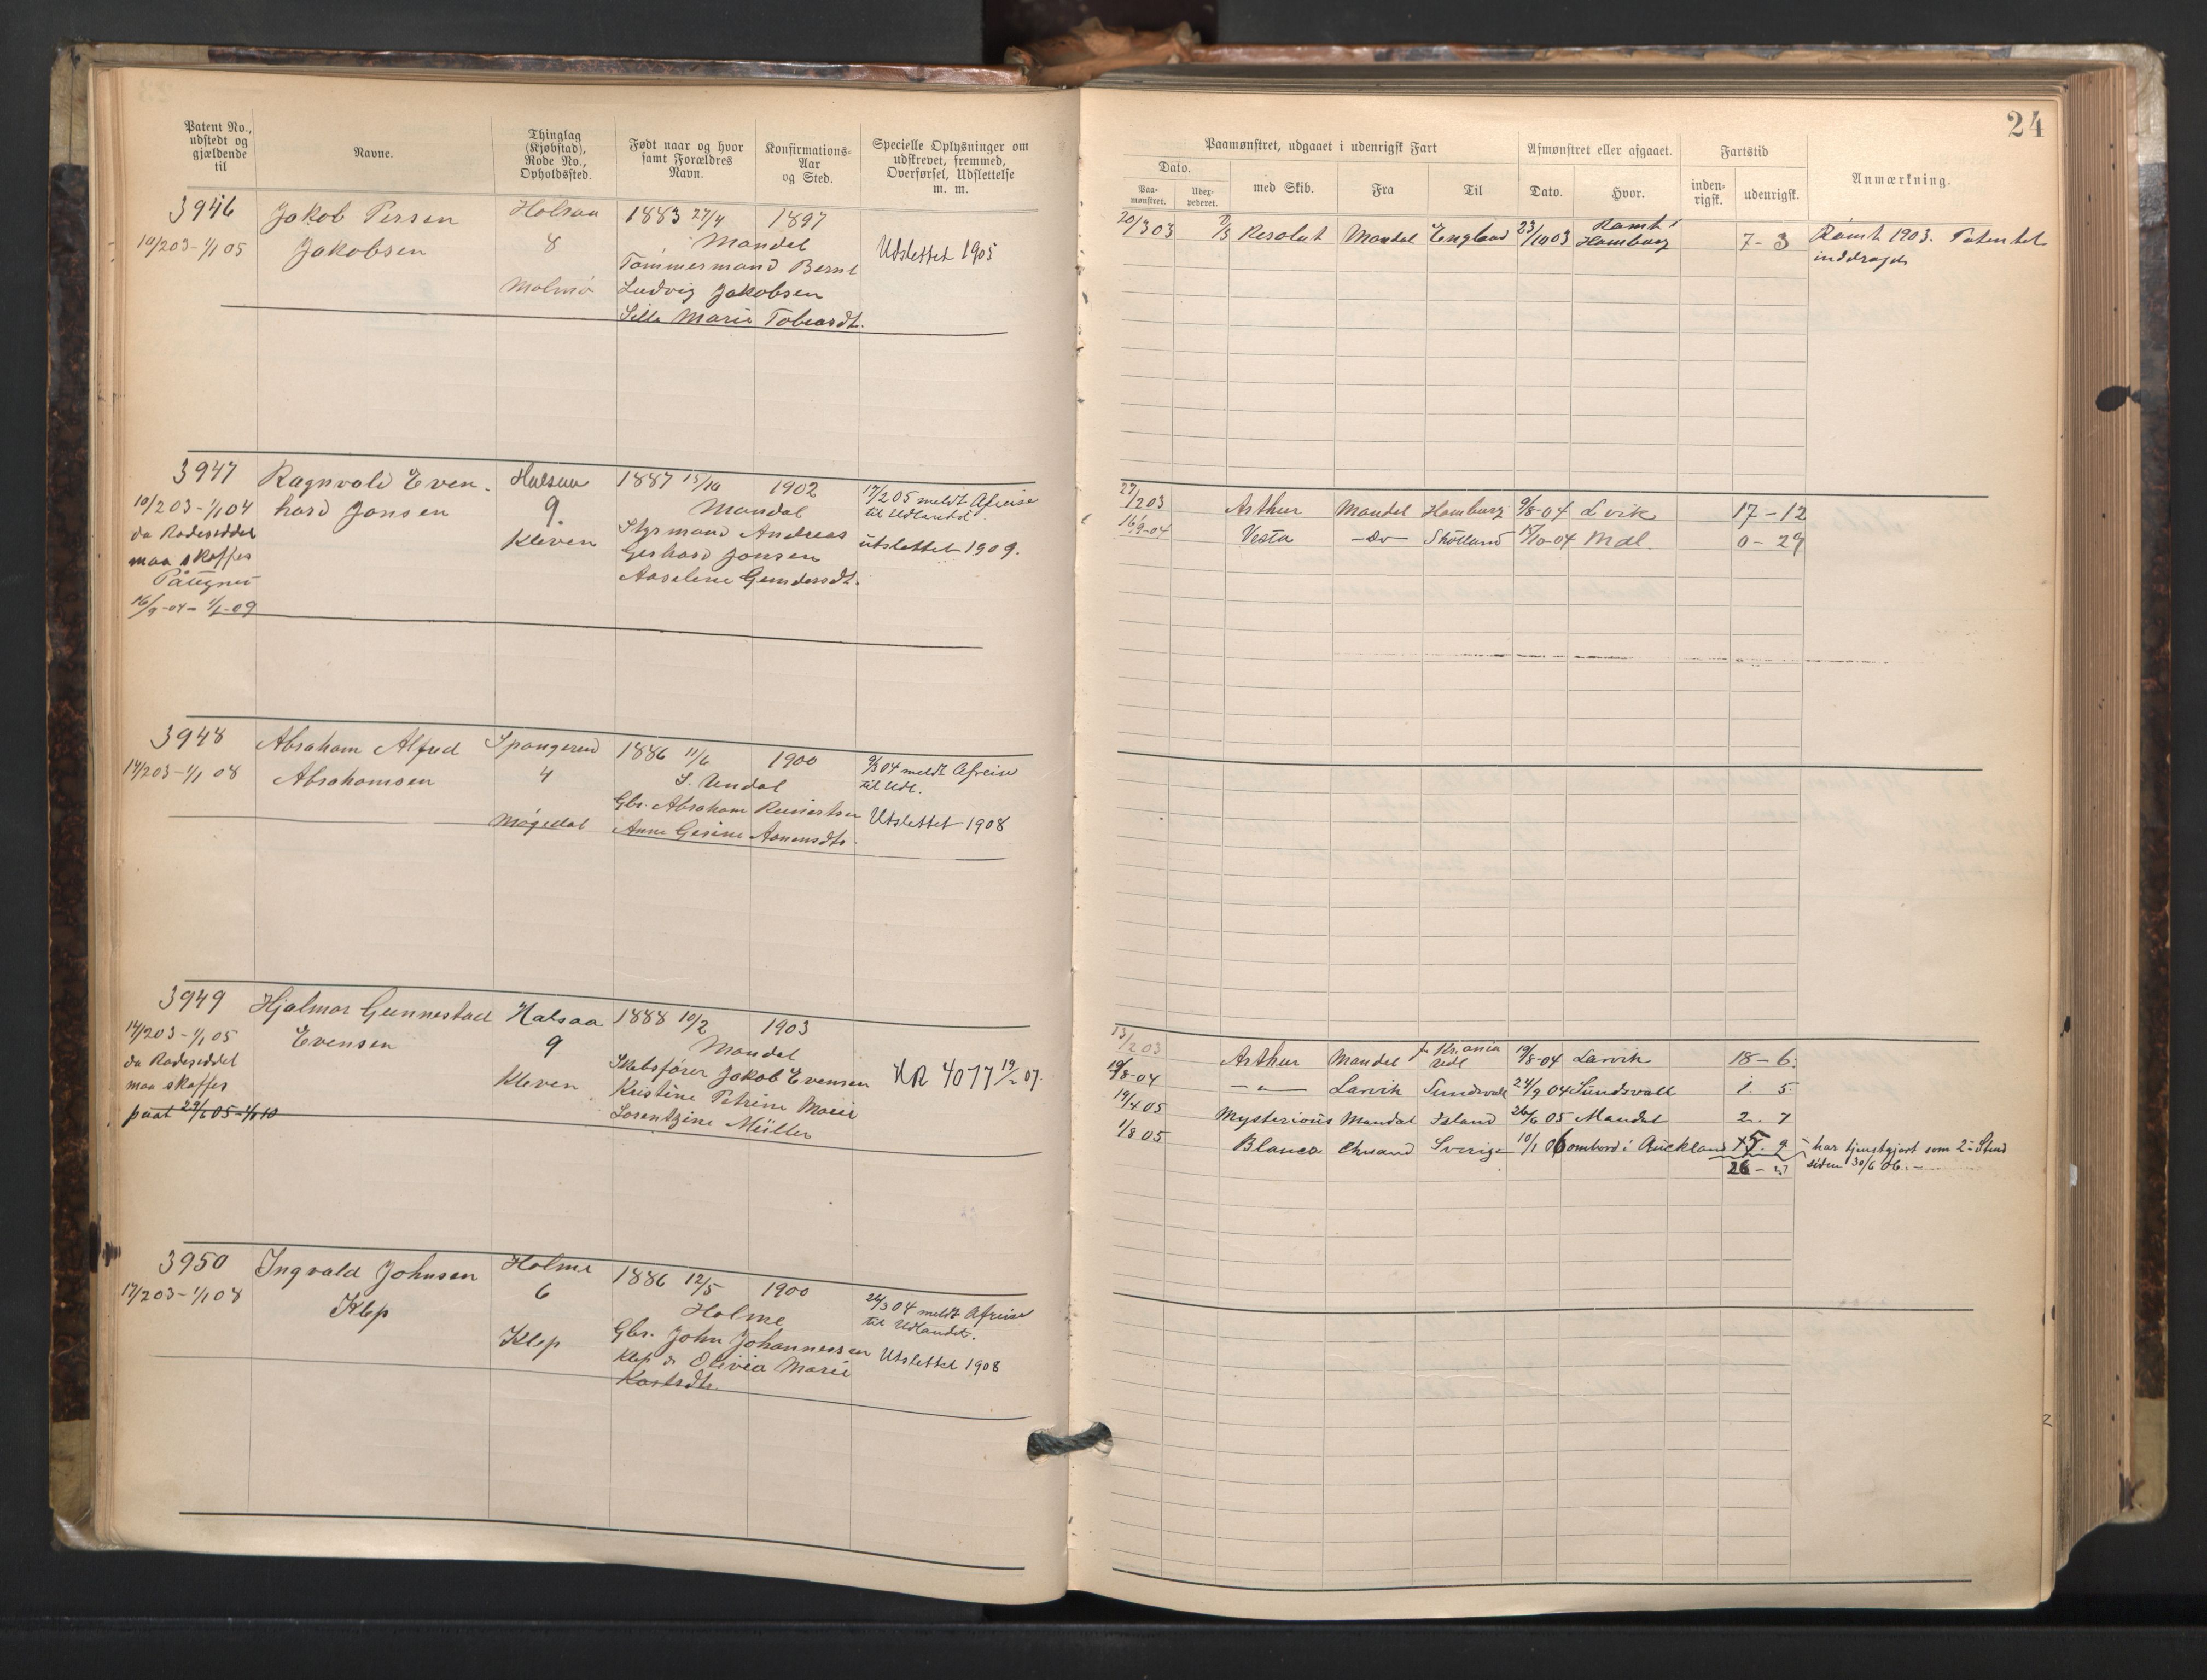 24
Patent No., udstedt og gjældende til
Navne.
Thinglag (Kjøbstad), Rode No., Opholdssted.
Født naar og hvor samt Forældres Navn.
Konfirmations-Aar og Sted.
Specielle Oplysninger om udskrevet, fremmed, Overførsel, Udslettelse m. m.
Paamønstret, udgaaet i udenrigsk Fart
Afmønstret eller afgaaet.
Fartstid
Anmærkning.
Dato.
Paamønstret.
med Skib.
Fra
Til
Dato.
Hvor.
indenrigsk.
udenrigsk.
3946 Jakob Persen Halsaa 1883 27/4 1897
10/2 03 - 1/1 05 Jakobsen 8 Mandal Udslettet 1905
Tømmermand Bernt
Malmø Ludvig Jakobsen
Sille Marie Tobiasdt.
20/3 03 Resolut Mandal England 23/10 03 Rømt i Hamburg 7 - 3 Rømt 1903. Patentet
inddrages
3947 Ragnvald Even- Halsaa 1887 15/10 1902 17/2 05 meldt Afreise
10/2 03 - 1/1 04 hard Jansen 9. Mandal til Udlandet.
da Rodeseddel Styrmand Andreas
maa skaffes Kleven Gerhard Jansen utslettet 1909.
Påtegnet Aaselene Gundersdt.
16/9 - 04 - 1/1 - 09
27/2 03 Arthur Mandal Hamburg 9/8 - 04 Lvik 17 - 12
16/9 - 04 Vesta - do - Skotland 15/10 - 04 Mdl. 0 - 29
3948 Abraham Alfred Spangereid 1886 11/6 1900 9/3 04 meldt Afreise
14/2 03 - 1/1 08 Abrahamsen 4 S. Undal til Udl.
Gbr. Abraham Reinertsen
Møgedal Anne Gesine Aanensdtr. Utslettet 1908
3949 Hjalmar Gunnestad Halsaa 1888 10/2 1903
14/2 03 - 1/1 05 Evensen 9 Mandal
da Rodeseddel Skibsfører Jakob Evensen HR 4077 19/2 07.
maa skaffes Kleven Kristine Petrine Marie
paat 29/6 05 - 1/1 10 Lorentzine Müller
13/2 03 Arthur Mandal Kr.ania 19/8 - 04 Larvik 18 - 6.
19/8 - 04 - " - Larvik Sundsvall 24/9 04 Sundsvall 1. 5
19/4 05 Mysterious Mandal Island 26/6 05 Mandal 2. 7
1/8 05 Blanca Chrsand Sverige 10/1 06 ombord i Auckland 5. 9 har tjenstgjort som 2. Stmd
26 - 27 siden 30/6 06. -
3950 Ingvald Johnsen Holme 1886 12/5 1900
17/2 03 - 1/1 08 Klep 6 Holme 24/3 04 meldt Afreise
til Udlandet.
Klep Gbr. John Johannessen
Klep & Olivia Marie Utslettet 1908